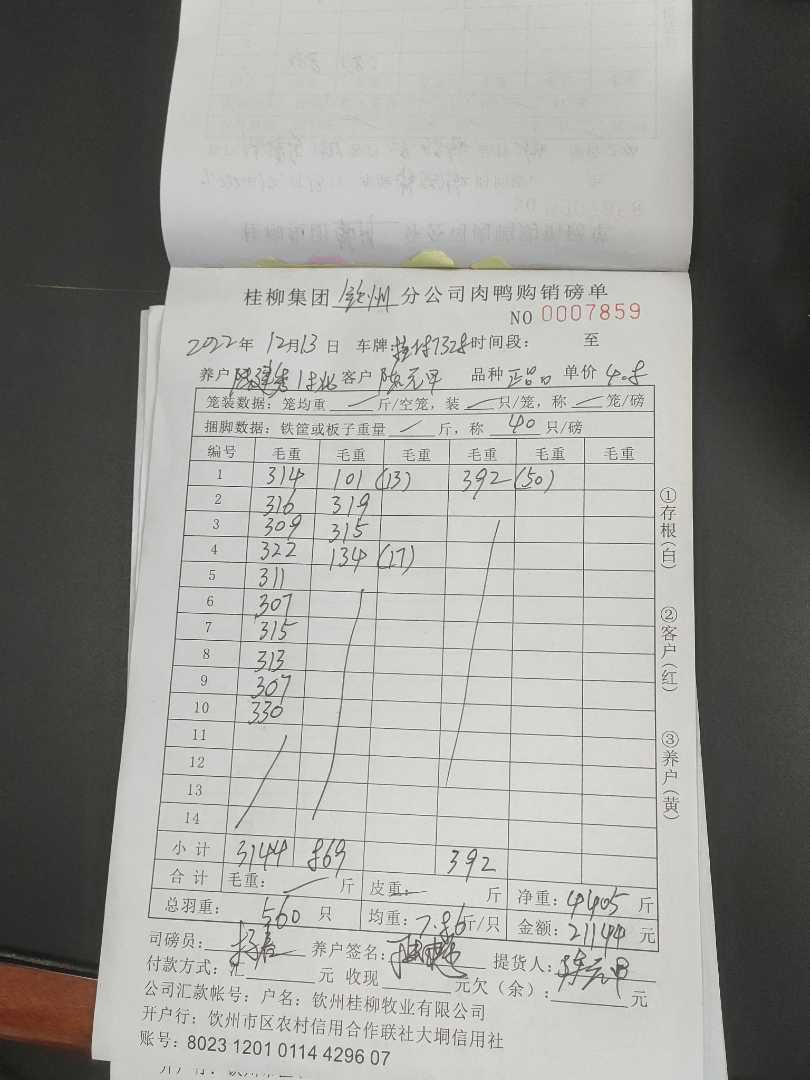 桂柳集团 钦州 分公司肉鸭购销磅单
NO 0007859
2022年 12月13日 车牌 时间段: 至
养户 客户 陈元甲 品种 正品 单价 4.8
笼装数据:笼均重 斤/空笼,装 只/笼,称 笼/磅
捆脚数据:铁筐或板子重量 斤,称 40 只/磅
编号 毛重 毛重 毛重 毛重 毛重 毛重
1 314 101 (13) 392 (50)
2 316 319
3 309 315
4 322 134 (17)
5 311
6 307
7 315
8 313
9 307
10 330
11
12
13
14
小计 3144 869 392
合计 毛重: 斤 皮重: 斤 净重: 4405 斤
总羽重: 560 只 均重: 7.86 斤/只 金额: 21144 元
司磅员: 养户签名: 提货人: 陈元甲
付款方式:汇 元 收现 元欠(余): 元
公司汇款帐号:户名:钦州桂柳牧业有限公司
开户行:钦州市区农村信用合作联社大垌信用社
账号:8023 1201 0114 4296 07
①存根(白)
②客户(红)
③养户(黄)